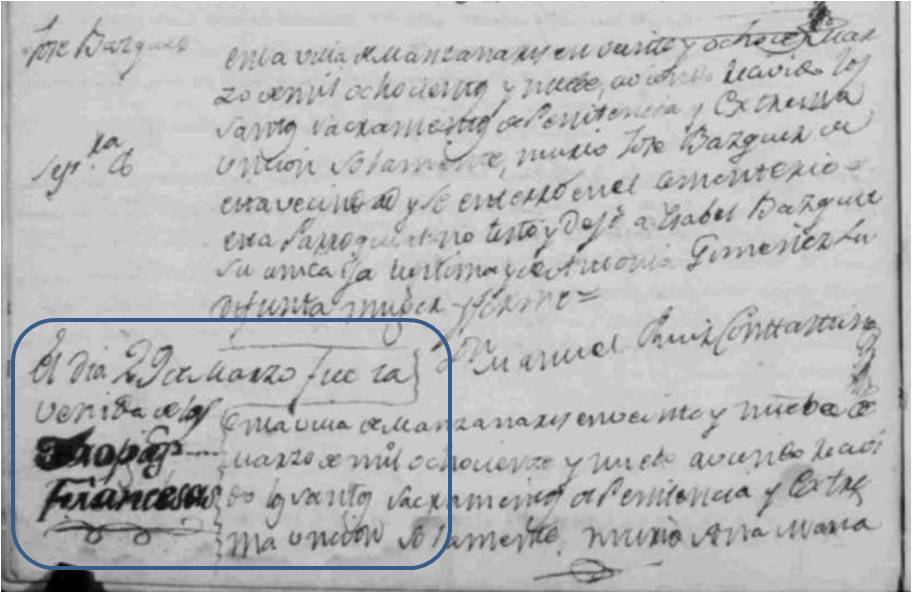 Jose Bazquez
en la villa de Manzanares en veinte y ocho de Mar
zo de mil ochocientos y nuebe, aviendo recivido los
santos sacramentos de Penitencia y Extrema
uncion solamente, murio Jose Bazquez de
esta vecindad y se enterró en el cementerio
esta Parroquial no testó y Dejó a Isabel Bazquez
su unica ija lexitima y de Antonia Gimenez su
difunta muger y firmé =
Manuel Ruiz Constantino
El dia 29 de Marzo fue la
venida de las
Tropas
Francesas
En la villa de Manzanares en veinte y nuebe de
Marzo de mil ochocientos y nuebe aviendo recivi
do los santos sacramentos de Penitencia y Extre
ma uncion solamente, murio Ana Maria